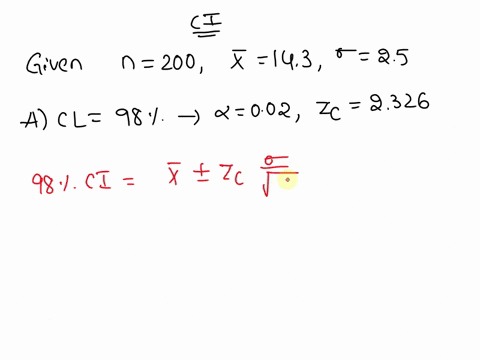 CI
Given n = 200, x̄ = 14.3, σ = 2.5
A) CL = 98% → α = 0.02, Zc = 2.326
98% CI = x̄ ± Zc σ/√